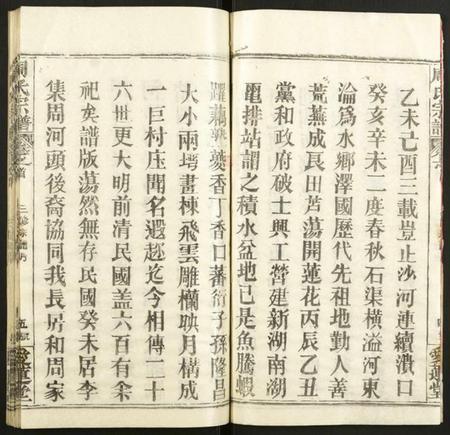 周氏宗譜
乙未己酉三載豈止沙河連續潰口
癸亥辛未二度春秋石渠橫溢河東
淪爲水鄉澤國歷代先祖地勤人善
荒蕪成良田芦蕩開蓮花丙辰乙丑
黨和政府破土興工營建新湖南湖
電排站謂之積水盆地已是魚騰蝦
躍藕 菱香丁香口蕃衍子孫隆昌
大小兩塆畫棟飛雲雕欄映月構成
一巨村庄聞名遐迩迄今相傳二十
六世更大明前清民國蓋六百有余
祀矣譜版蕩然無存民國癸未居李
集周河頭後裔協同我長房和周家
周氏宗譜
卷之首
愛蓮堂
愛蓮堂